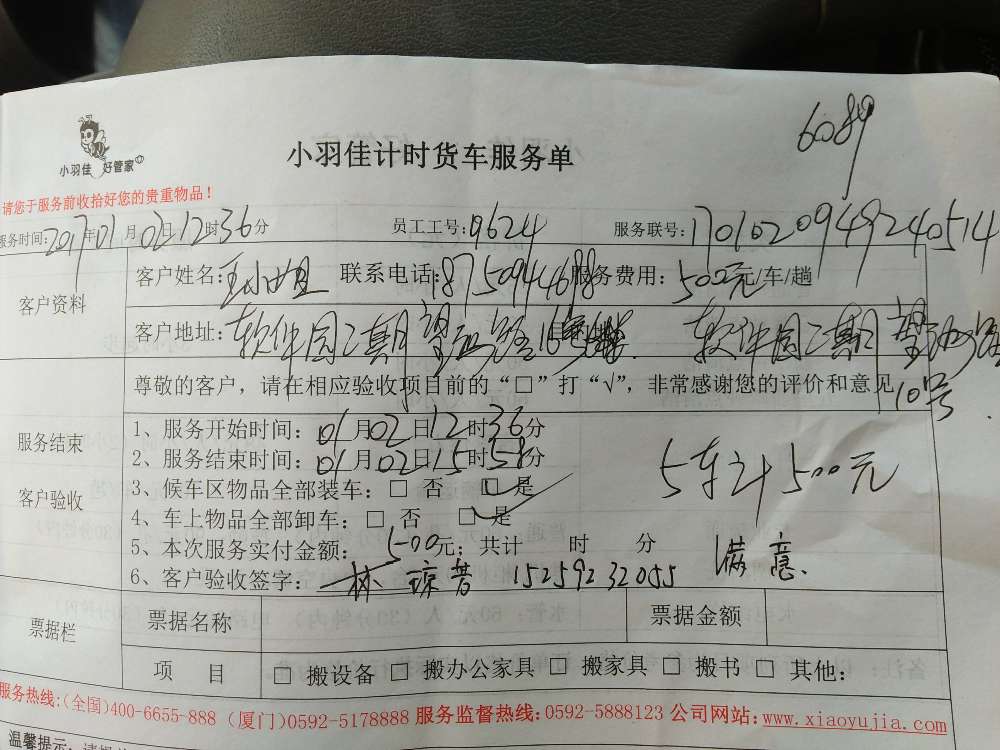 6089
小羽佳 好管家
小羽佳计时货车服务单
请您于服务前收拾好您的贵重物品！
服务时间:2017年01月02日12时36分 员工工号:9624 服务联号:1701020949240514
客户资料
客户姓名: 王小 联系电话:18750944698 服务费用: 500元/车/趟
客户地址: 软件园二期望海路16号楼 软件园二期望海路10号
尊敬的客户，请在相应验收项目前的“□”打“√”，非常感谢您的评价和意见
服务结束
客户验收
1、服务开始时间: 01月02日12时36分
2、服务结束时间: 01月02日15时58分
3、候车区物品全部装车: □ 否 □ 是
5车计500元
4、车上物品全部卸车: □ 否 □ 是
5、本次服务实付金额: 500元; 共计 时 分
满意.
6、客户验收签字: 林琼普 15259232055
票据栏
票据名称 票据金额
项 目 □ 搬设备 □ 搬办公家具 □ 搬家具 □ 搬书 □ 其他:
服务热线:(全国)400-6655-888 (厦门)0592-5178888 服务监督热线:0592-5888123 公司网站:www.xiaoyujia.com
温馨提示: